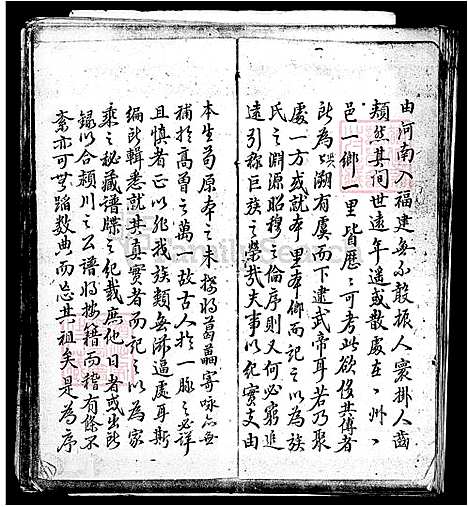 由河南入福建無不殷振人寰掛人齒
頰然其間世遠年遥或散處在〻州〻
邑一鄉一里皆歷〻可考此欲俟其傳者
所為誤溯有虞而下逮武帝耳若乃聚
處一方或就本里本鄉而記之以為族
氏之淵源昭穆之倫序則又何必窮追
遠引称巨族之榮哉夫事以纪實支由
本生苟原本之未探將葛藟寄咏無
補於高曾之萬一故古人於一脉之必詳
且慎者正以非我族類無濟逼處耳斯
編所輯悉就其真實者而記之以為家
乘之秘藏譜牒之纪載庶他日者或出所
録以合潁川之公譜將按籍而稽有條不
紊亦可無蹈数典而忘其祖矣是為序